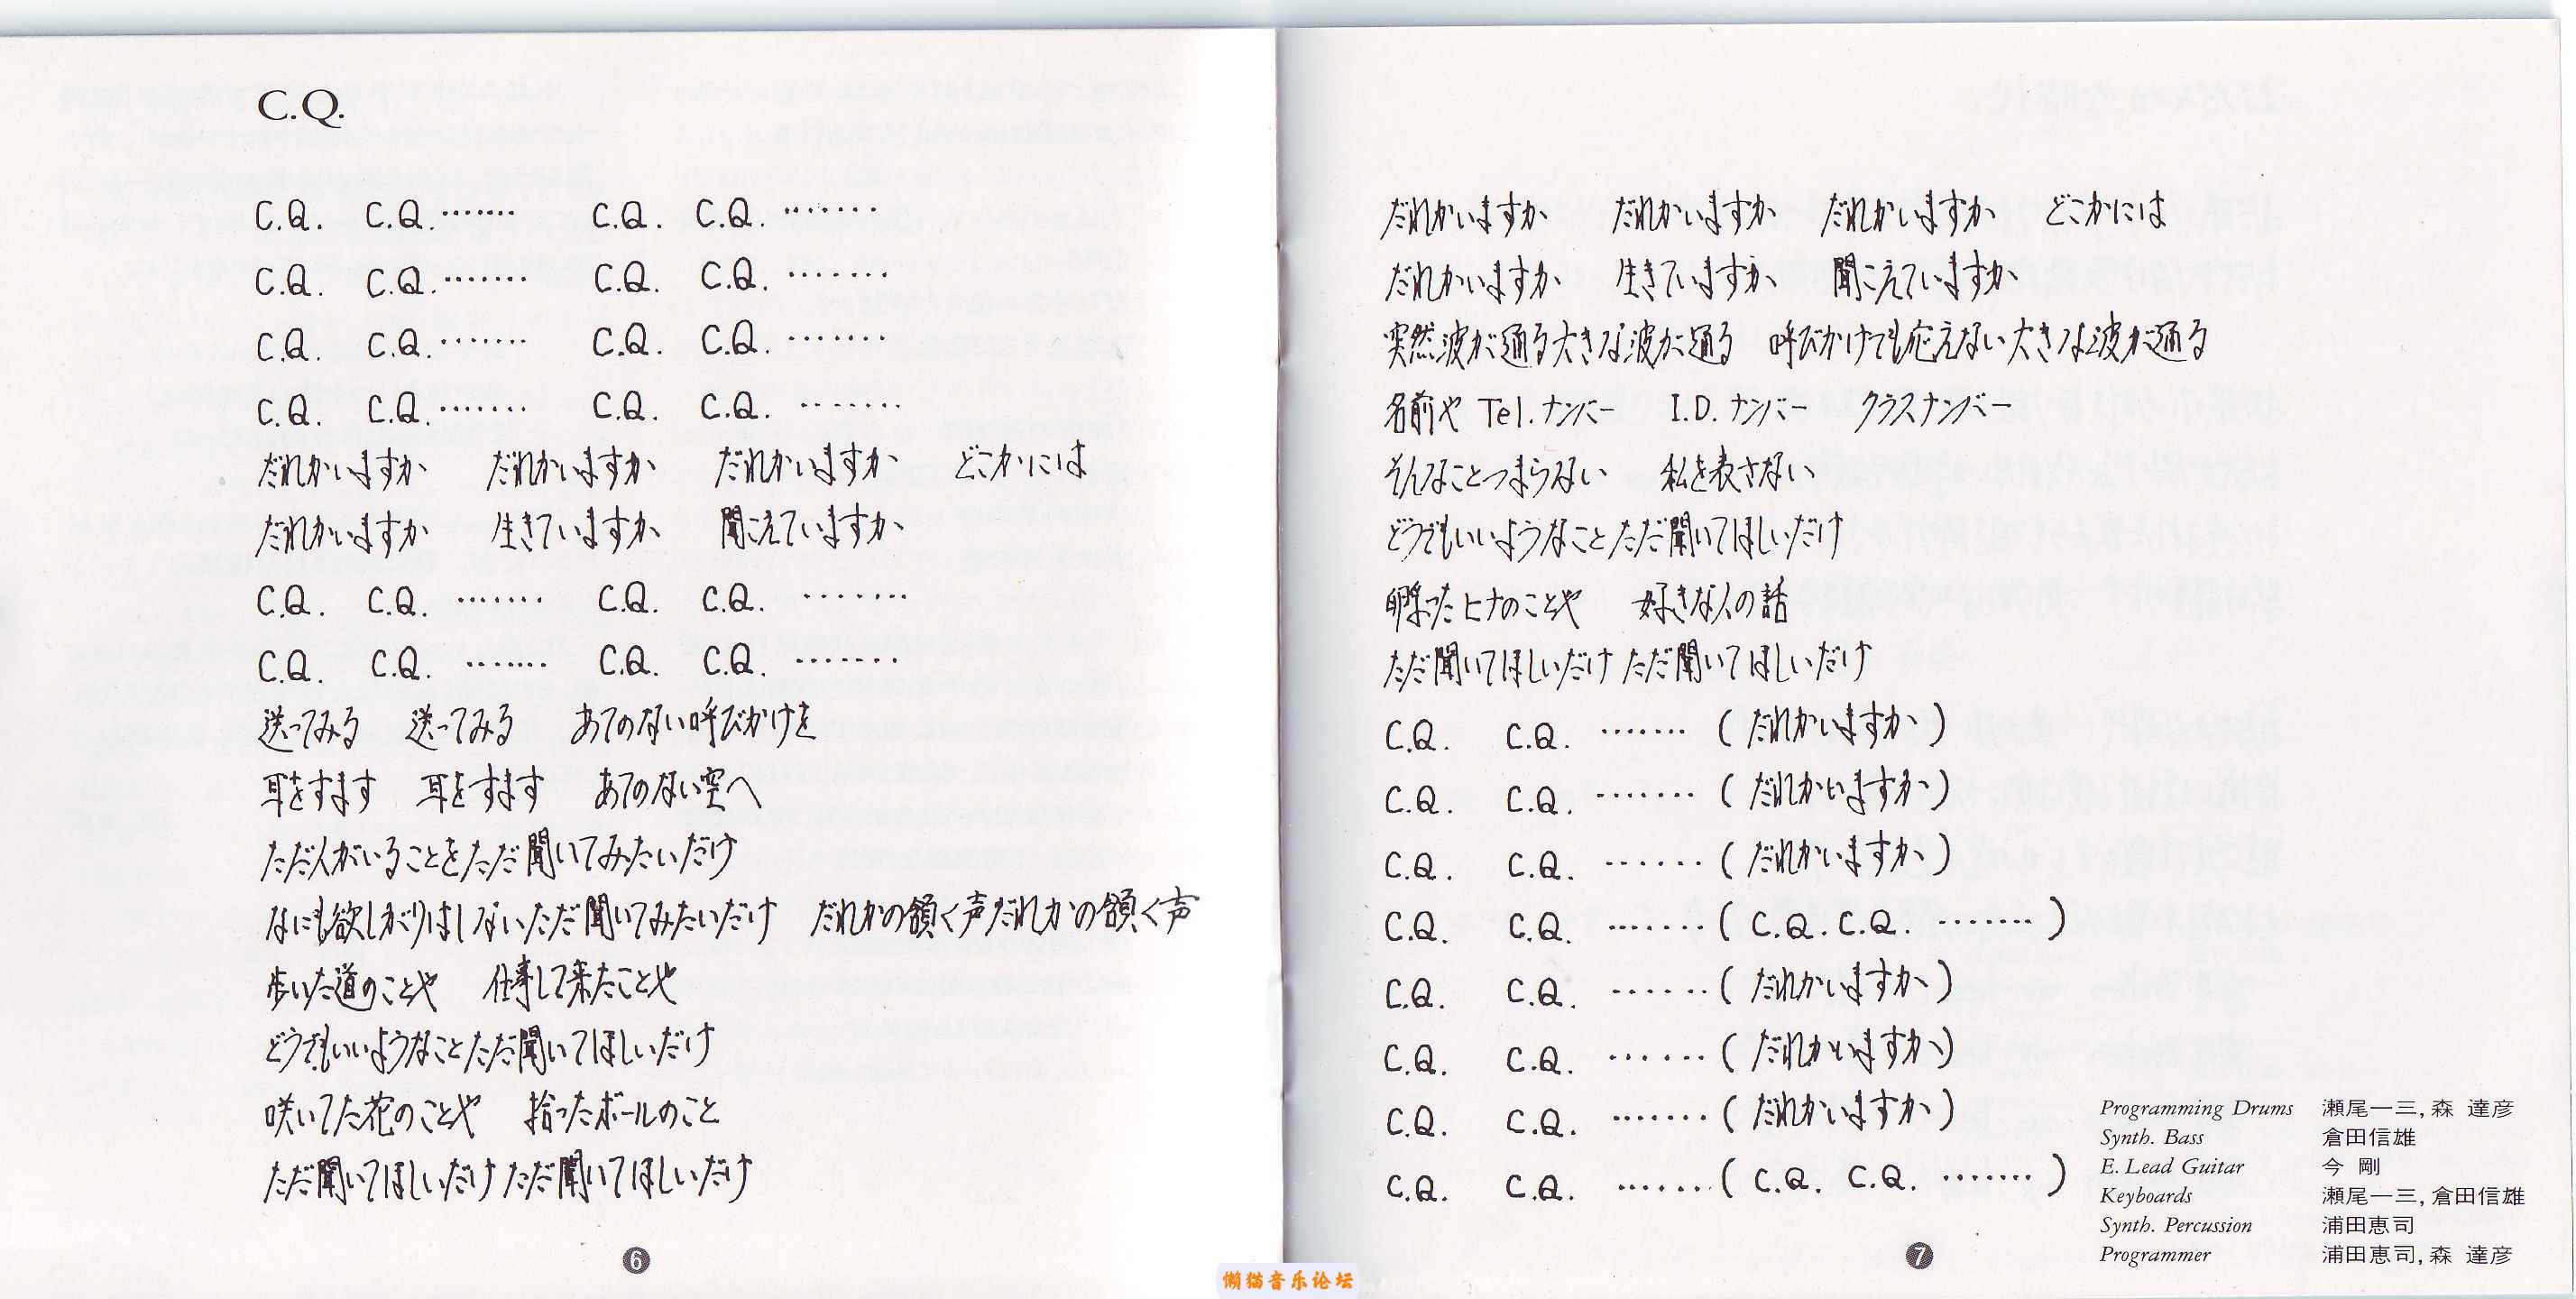 C.Q.
C.Q. C.Q. ……. C.Q. C.Q. …….
C.Q. C.Q. ……. C.Q. C.Q. …….
C.Q. C.Q. ……. C.Q. C.Q. …….
C.Q. C.Q. ……. C.Q. C.Q. …….
だれかいますか だれかいますか だれかいますか どこかには
だれかいますか 生きていますか 聞こえていますか
C.Q. C.Q. ……. C.Q. C.Q. …….
C.Q. C.Q. ……. C.Q. C.Q. …….
送ってみる 送ってみる あてのない呼びかけを
耳をすます 耳をすます あてのない空へ
ただ人がいることをただ聞いてみたいだけ
なにも欲しがりはしないただ聞いてみたいだけ だれかの頷く声だれかの頷く声
歩いた道のことや 仕事して来たことや
どうでもいいようなことただ聞いてほしいだけ
咲いてた花のことや 拾ったボールのこと
ただ聞いてほしいだけ ただ聞いてほしいだけ
6
だれかいますか だれかいますか だれかいますか どこかには
だれかいますか 生きていますか 聞こえていますか
突然波が通る大きな波が通る 呼びかけても応えない大きな波が通る
名前や Tel.ナンバー I.D.ナンバー クラスナンバー
そんなことつまらない 私を表さない
どうでもいいようなことただ聞いてほしいだけ
孵ったヒナのことや 好きな人の話
ただ聞いてほしいだけ ただ聞いてほしいだけ
C.Q. C.Q. ……. (だれかいますか)
C.Q. C.Q. ……. (だれかいますか)
C.Q. C.Q. ……. (だれかいますか)
C.Q. C.Q. ……. (C.Q. C.Q. …….)
C.Q. C.Q. ……. (だれかいますか)
C.Q. C.Q. ……. (だれかいますか)
C.Q. C.Q. ……. (だれかいますか)
C.Q. C.Q. ……. (C.Q. C.Q. …….)
Programming Drums 瀬尾一三, 森 達彦
Synth. Bass 倉田信雄
E. Lead Guitar 今 剛
Keyboards 瀬尾一三, 倉田信雄
Synth. Percussion 浦田恵司
Programmer 浦田恵司, 森 達彦
7
懒猫音乐论坛